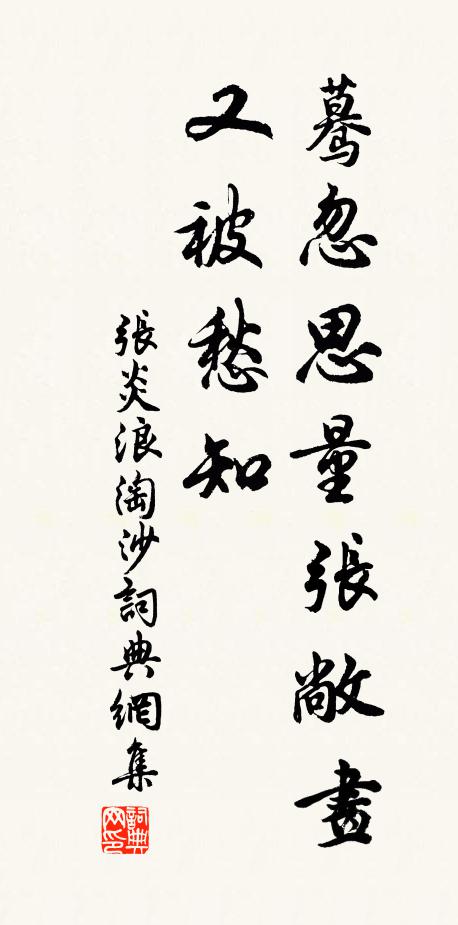 驀忽思量張敞畫
又被愁知
張炎浪淘沙詞典網集
詞典
网印